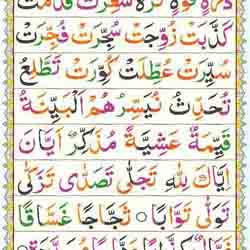 قُوَّةٍ كَرَّةٌ سُعِّرَتْ قَدَّمَتْ
كَذَّبَتْ زُوِّجَتْ سُجِّرَتْ فُجِّرَتْ
سُيِّرَتْ عُطِّلَتْ كُوِّرَتْ تَطَّلِعُ
تُحَدِّثُ نُيَسِّرُ هُمُ الْبَيِّنَةُ
قَيِّمَةٌ عَشِيَّةً مُذَكِّرٌ اَيَّانَ
اِيَّاكَ لِلّٰهِ تَجَلّٰى تَصَدّٰى تَزَكّٰى
تَوَلّٰى تَوَّابًا ۝ ثَجَّاجًا غَسَّاقًا